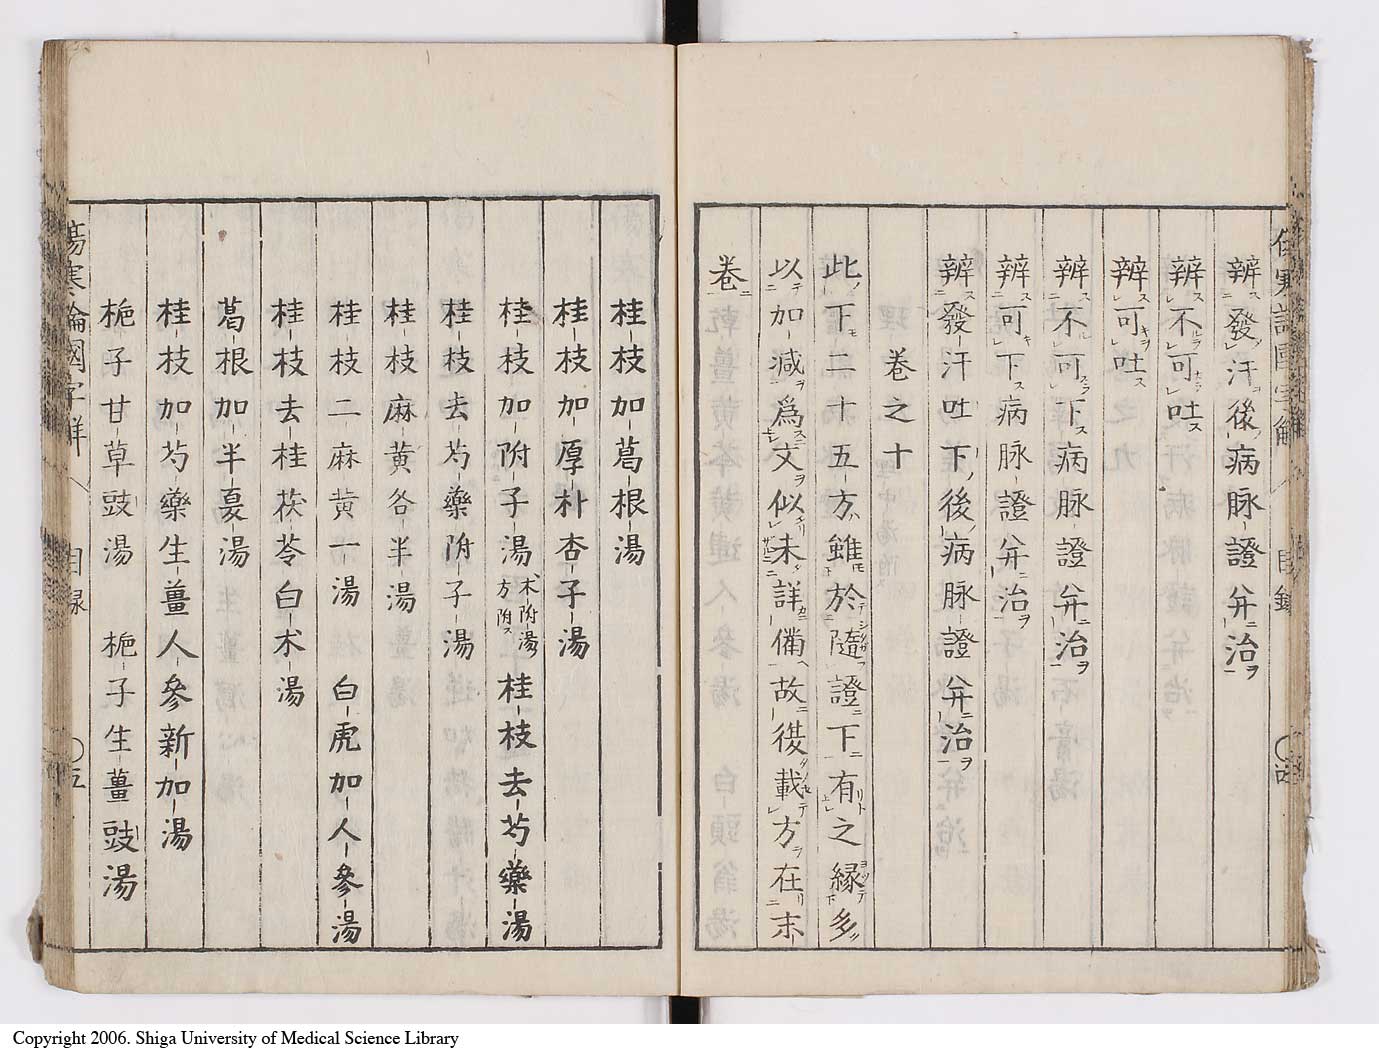 辨發汗後病脉證并治
辨不可吐
辨可吐
辨不可下病脉證并治
辨可下病脉證并治
辨發汗吐下後病脉證并治
卷之十
此下二十五方雖於隨證下有之縁多
以加減爲文似未詳備故復載方在末
卷
桂枝加葛根湯
桂枝加厚朴杏子湯
桂枝加附子湯 术附湯方附 桂枝去芍藥湯
桂枝去芍藥附子湯
桂枝麻黄各半湯
桂枝二麻黄一湯 白虎加人參湯
桂枝去桂茯苓白术湯
葛根加半夏湯
桂枝加芍藥生薑人參新加湯
梔子甘草豉湯 梔子生薑豉湯
傷寒論國字解 目録 五
Copyright 2006. Shiga University of Medical Science Library